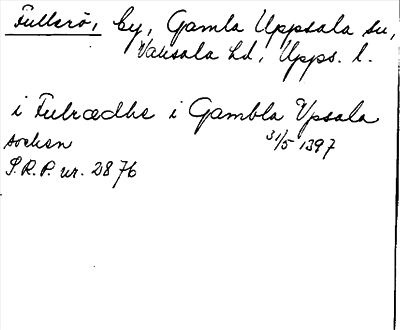 Fullerö, by, Gamla Uppsala sn,
Vaksala hd, Upps. l.
i Fulrædhe i Gambla Vpsala
socken 31/5 1397
S.R.P. nr. 2876